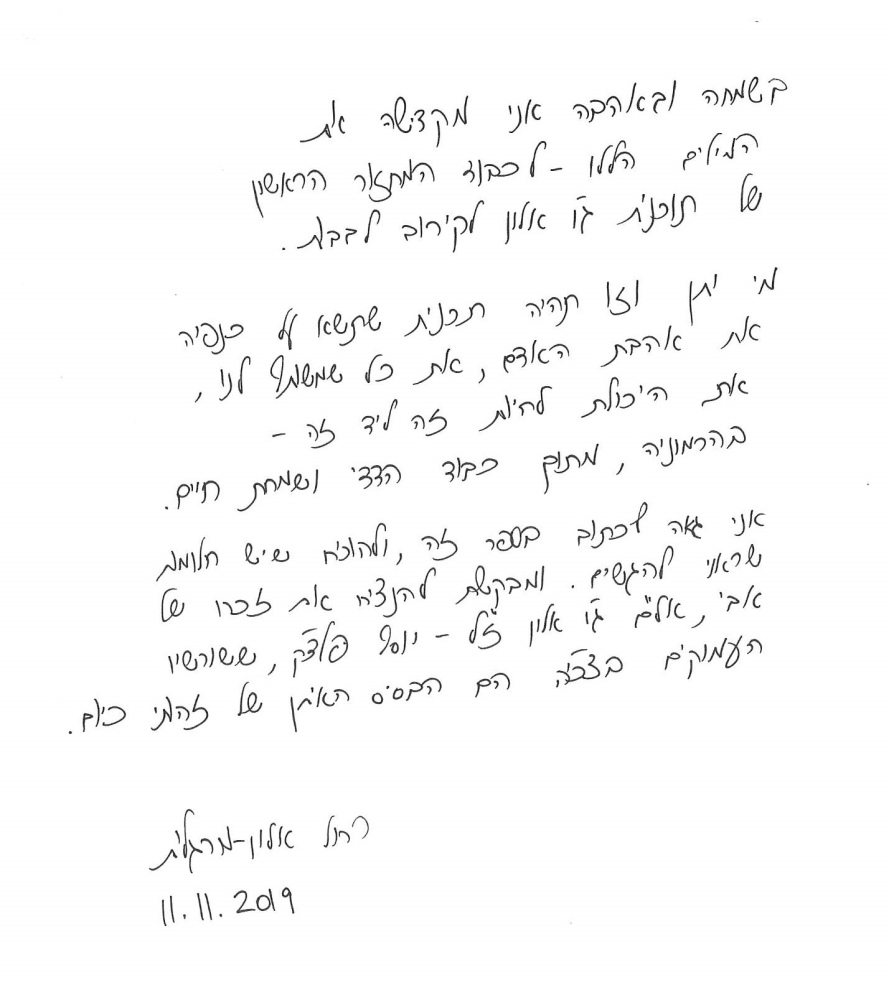 בשמחה ובאהבה אני מקדישה את
המילים הללו – לכבוד המחזור הראשון
של תוכנית ג'ו אלון לקירוב לבבות.
מי יתן וזו תהיה תכנית שתישא על כנפיה
את אהבת האדם, את כל שמשותף לנו,
את היכולת לחיות זה ליד זה –
בהרמוניה, מתוך כבוד הדדי ושמחת חיים.
אני גאה לכתוב בספר זה, ולהוכיח שיש חלומות
שראוי להגשים. ומבקשת להנציח את זכרו של
אבי, אל"מ ג'ו אלון ז"ל – יוסף פלצ'ק, ששורשיו
העמוקים בצ'כיה הם הבסיס האיתן של זהותי כיום.
רחל אלון-מרגלית
11.11.2019